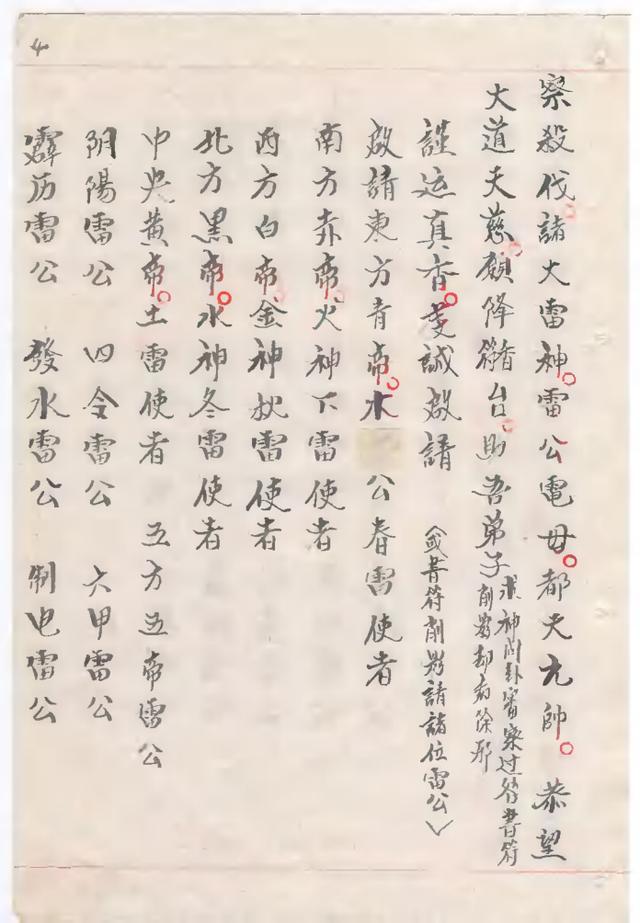 察殺伐。諸大雷神。雷公電母。都天元帥。恭望
大道天慈。願降香台。助吾弟子求神問卦審察过咎書符
削影却病除邪
謹运真香。虔誠啟請〈或書符削影請諸位雷公〉
啟請東方青帝。木 公春雷使者
南方赤帝。火神下雷使者
西方白帝。金神秋雷使者
北方黑帝。水神冬雷使者
中央黄帝。土雷使者 五方五帝雷公
阴陽雷公 四令雷公 六甲雷公
霹历雷公 發水雷公 制电雷公
4